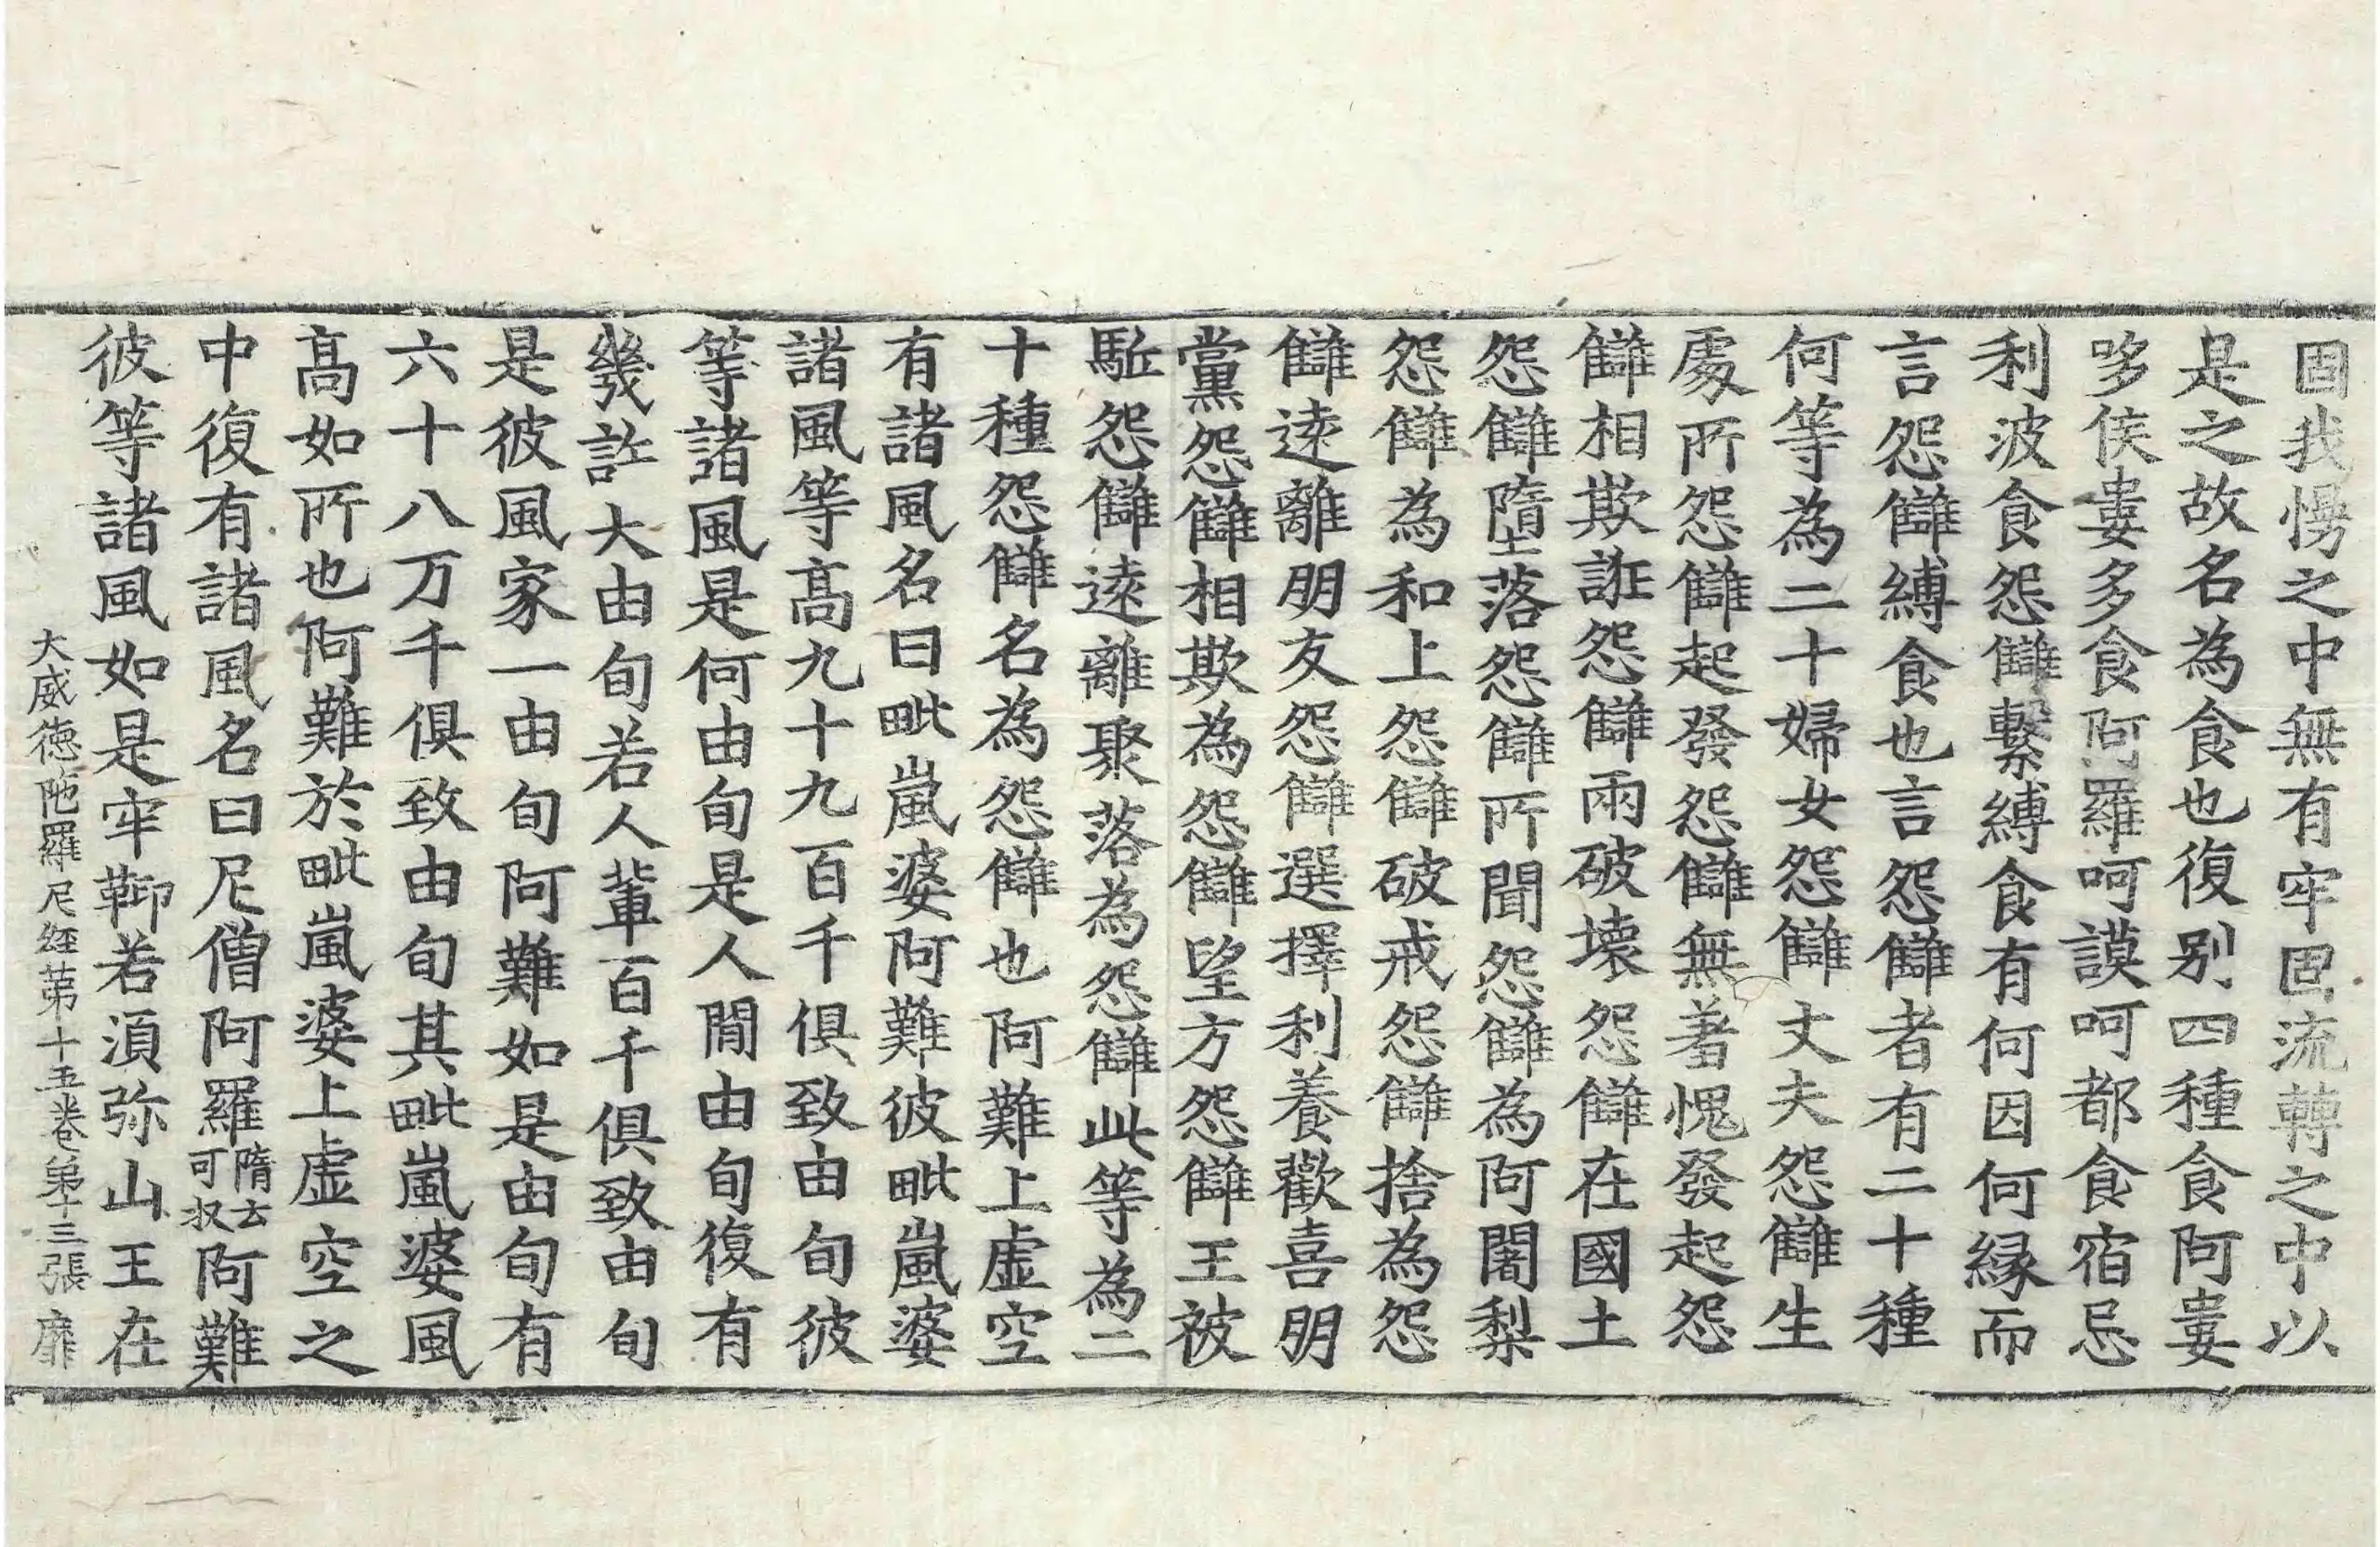 固我慢之中無有牢固流轉之中以
是之故名為食也復别四種食阿婁
哆侯婁多食阿羅呵謨呵都食宿忌
利波食怨讎繫縛食有何因何縁而
言怨讎縛食也言怨讎者有二十種
何等為二十婦女怨讎丈夫怨讎生
處所怨讎起發怨讎無著愧發起怨
讎相欺誑怨讎兩破壞怨讎在國土
怨讎墮落怨讎所聞怨讎為阿闍梨
怨讎為和上怨讎破戒怨讎捨為怨
讎逺離朋友怨讎選擇利養歡喜朋
黨怨讎相欺為怨讎望方怨讎王被
駈怨讎逺離聚落為怨讎此等為二
十種怨讎名為怨讎也阿難上虛空
有諸風名曰毗嵐婆阿難彼毗嵐婆
諸風等髙九十九百千俱致由旬彼
等諸風是何由旬是人閒由旬復有
幾許大由旬若人輩百千俱致由旬
是彼風家一由旬阿難如是由旬有
六十八万千俱致由旬其毗嵐婆風
髙如所也阿難於毗嵐婆上虛空之
中復有諸風名曰尼僧阿羅隋云可杈阿難
彼等諸風如是牢鞕若湏弥山王在
大威德陁羅尼經第十五卷第十三張 廱